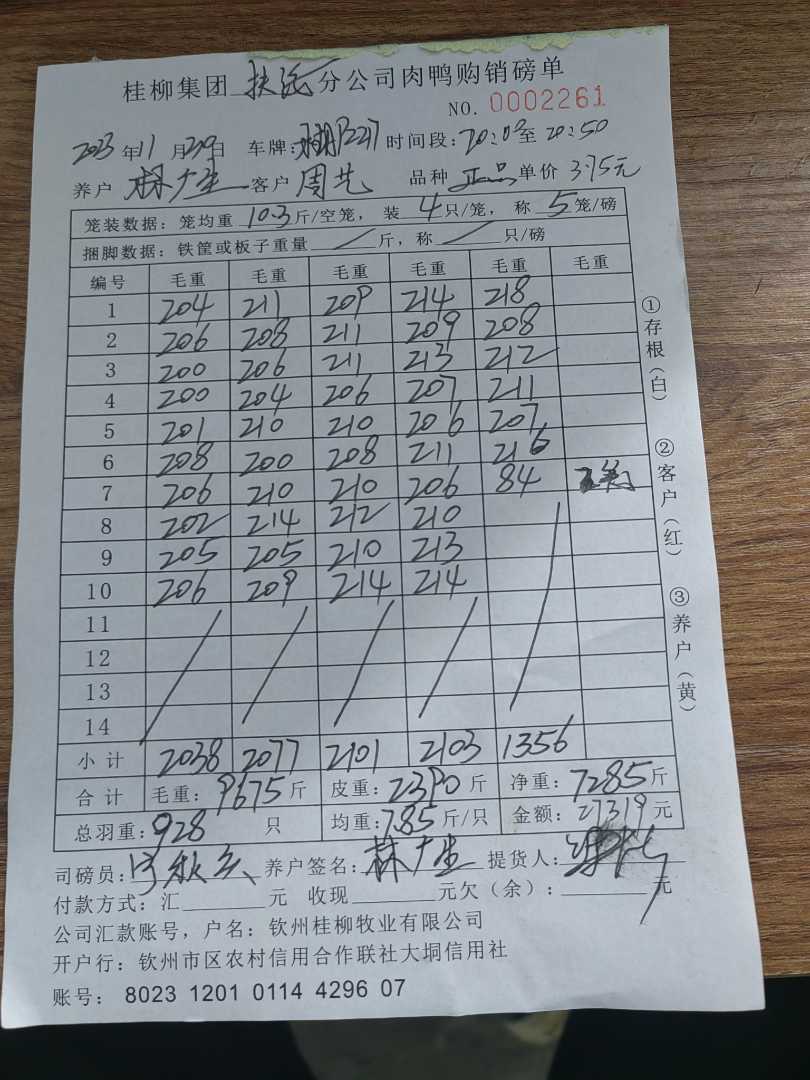 桂柳集团 扶绥 分公司肉鸭购销磅单
NO. 0002261
2023年11月29日 车牌: 时间段:20:09至20:50
养户 林广生 客户 周先 品种 正品 单价 3.75元
笼装数据:笼均重 10.3 斤/空笼, 装 4 只/笼, 称 5 笼/磅
捆脚数据:铁筐或板子重量 / 斤,称 / 只/磅
编号 毛重 毛重 毛重 毛重 毛重 毛重
1 204 211 209 214 218
2 206 208 211 209 208
3 200 206 211 213 212
4 200 204 206 207 211
5 201 210 210 206 207
6 208 200 208 211 216
7 206 210 210 206 84
8 202 214 212 210
9 205 205 210 213
10 206 209 214 214
11
12
13
14
小计 2038 2077 2101 2103 1356
合计 毛重:9675斤 皮重:2390斤 净重:7285斤
总羽重:928 只 均重:7.85斤/只 金额:27319元
司磅员: 养户签名:林广生 提货人:
付款方式:汇 元 收现 元欠(余): 元
公司汇款账号,户名:钦州桂柳牧业有限公司
开户行:钦州市区农村信用合作联社大垌信用社
账号: 8023 1201 0114 4296 07
①存根(白)
②客户(红)
③养户(黄)